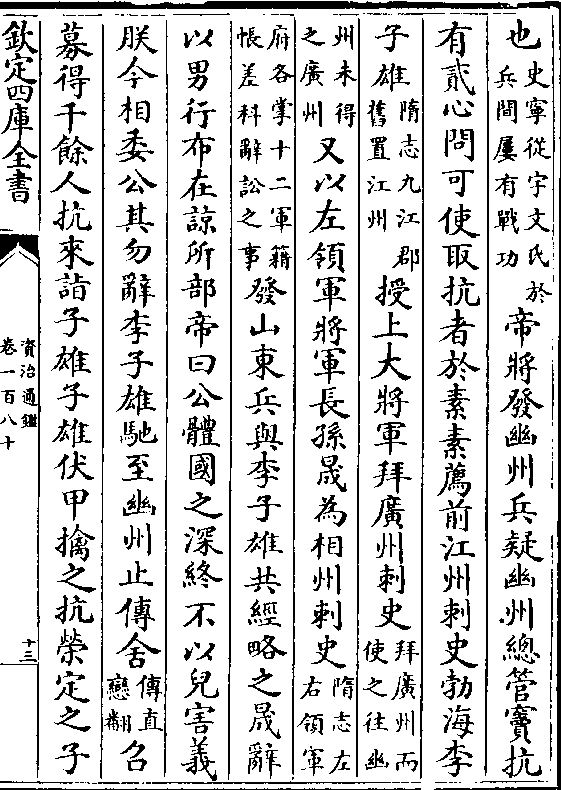 也史寧從宇文氏於兵間屢有戰功帝將發幽州兵疑幽州總管竇抗
有貳心問可使取抗者於素素薦前江州刺史勃海李
子雄隋志九江郡舊置江州授上大將軍拜廣州刺史拜廣州而使之往幽
州未得之廣州又以左領軍將軍長孫晟為相州刺史隋志左右領軍
府各掌十二軍籍帳差科辭訟之事發山東兵與李子雄共經略之晟辭
以男行布在諒所部帝曰公體國之深終不以兒害義
朕今相委公其勿辭李子雄馳至幽州止傳舍傳直戀翻召
募得千餘人抗來詣子雄子雄伏甲擒之抗榮定之子
欽定四庫全書
資治通鑑
卷一百八十
十三